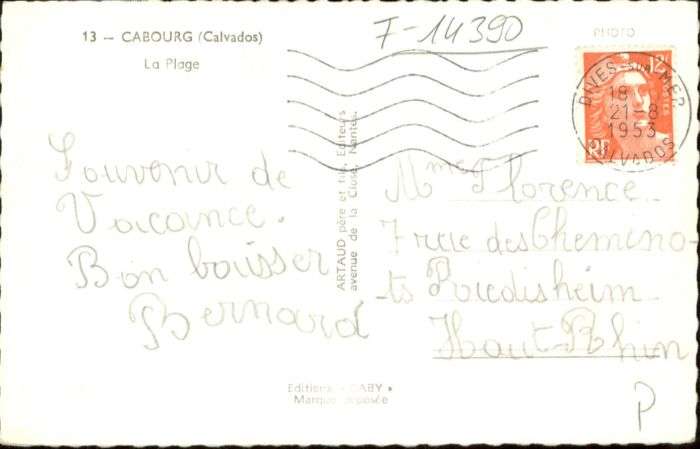 13 — CABOURG (Calvados)
La Plage
F-14390
PHOTO
12F
DIVES-SUR-MER
18
21-8
1953
CALVADOS
RF
Souvenir de
Vacance.
Bon baisser
Bernard
ARTAUD père et fils, Éditeurs
avenue de la Close, Nantes.
Mme Florence
7 rue des Chemino
-ts Riedisheim
Haut-Rhin
Editions « GABY »
Marque déposée
P